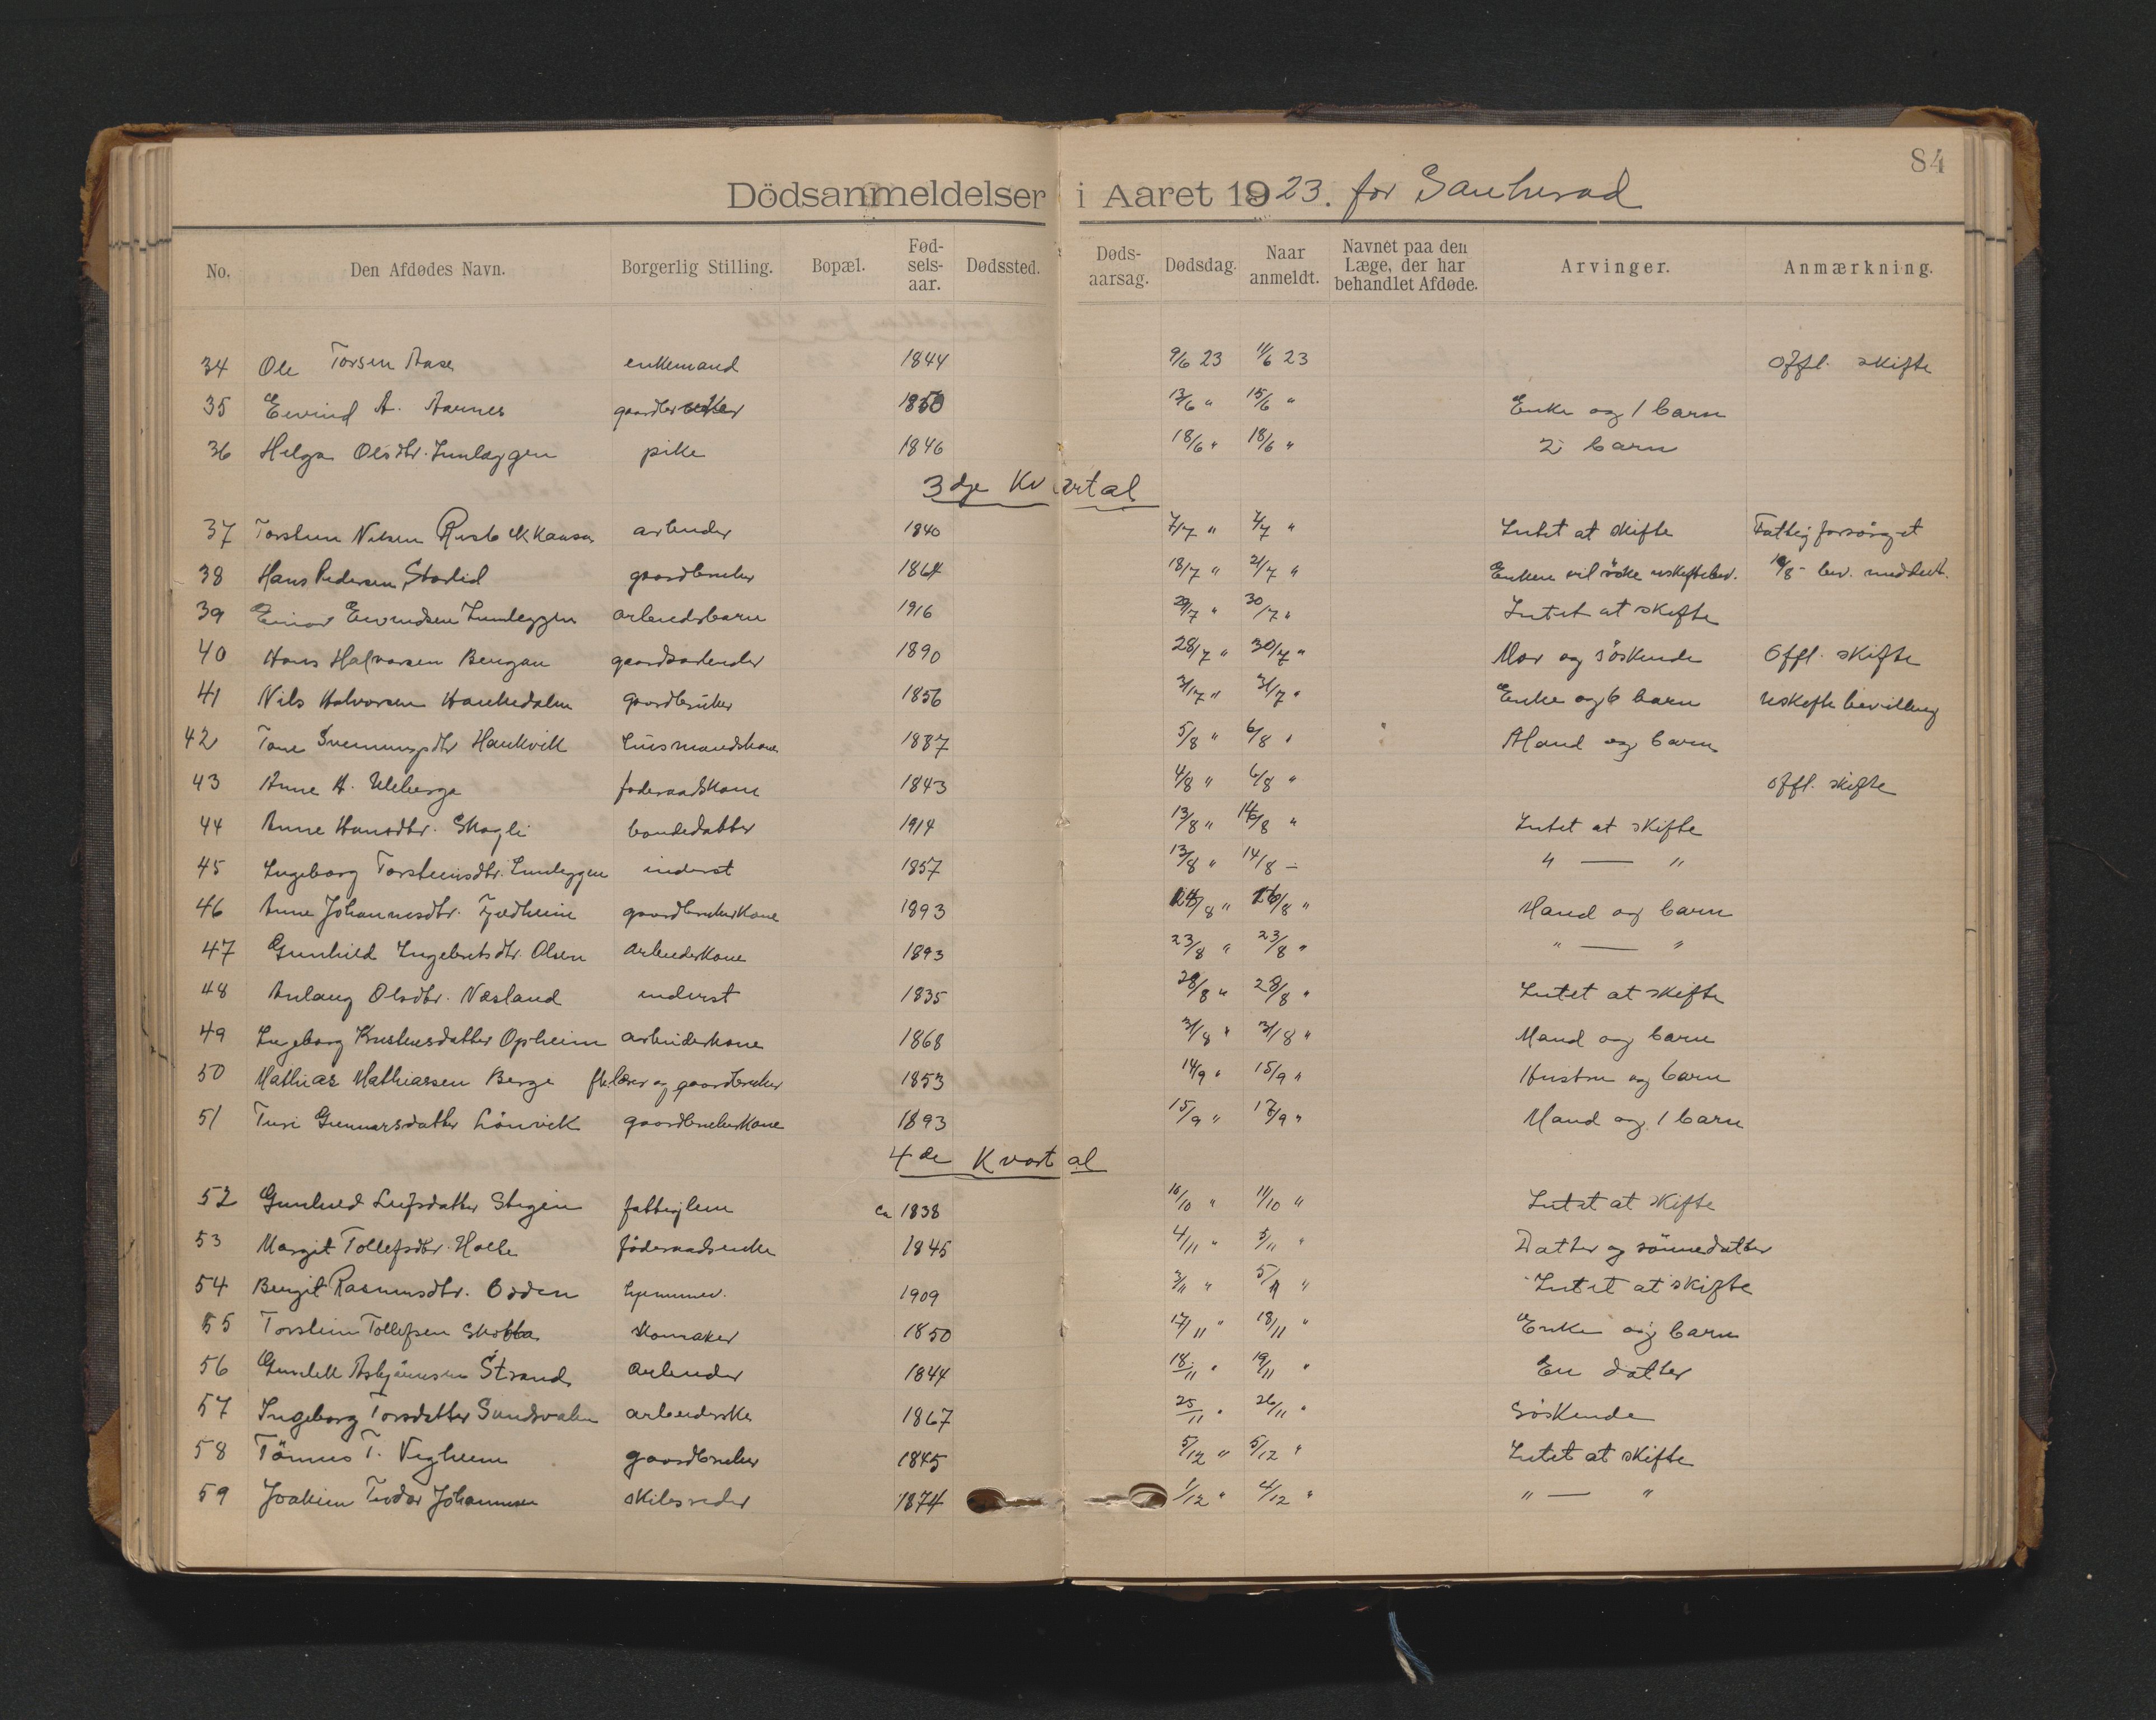 84
Dödsanmeldelser i Aaret 1923. for Sauherad
No. Den Afdødes Navn. Borgerlig Stilling. Bopæl. Fødselsaar. Dødssted. Dødsaarsag. Dødsdag. Naar anmeldt. Navnet paa den Læge, der har behandlet Afdøde. Arvinger. Anmærkning.
34 Ole Torsen Aase enkemand 1844 9/6 23 11/6 23 offl. skifte
35 Eivind A. Aarnes gaardbruker 1850 13/6 " 15/6 " Enke og 1 barn
36 Helga Olsdtr. Lunlæggen pike 1846 18/6 " 18/6 " 2 barn
3dje Kvartal
37 Torstein Nilsen arbeider 1840 7/7 " 7/7 " Intet at skifte Fattigforsørget
38 Hans Pedersen Starlid gaardbruker 1864 18/7 " 21/7 " Enken vil söke uskiftebev. bev. meddelt.
39 Einar Eivindsen Lunleggen arbeiderbarn 1916 29/7 " 30/7 " Intet at skifte
40 Hans Halvorsen Bengan gaardsarbeider 1890 28/7 " 30/7 " Mor og söskende Offl. skifte
41 Nils Halvorsen Haukedalen gaardbruker 1856 31/7 " 31/7 " Enke og 6 barn uskifte bevilling
42 Tone Svenningsdtr Haukvik husmandskone 1887 5/8 " 6/8 " Mand og barn
43 Anne H. Uleberge föderaadskone 1843 4/8 " 6/8 " offl. skifte
44 Anne Hansdtr. Skogli bondedatter 1914 13/8 " 14/8 " Intet at skifte
45 Ingeborg Torsteinsdtr. Lunleggen inderst 1857 13/8 " 14/8 — " — "
46 Anne Johannesdtr. gaardbrukerkone 1893 Mand og barn
47 Gunhild Ingebretsdtr. Olsen arbeiderkone 1893 23/8 " 23/8 " " — "
48 Aslaug Olsdtr. Næsland inderst 1835 28/8 " 28/8 " Intet at skifte
49 Ingeborg Kristensdatter Opheim arbeiderkone 1868 31/8 " 31/8 " Mand og barn
50 Mathias Mathiassen Berge fhv. lærer og gaardbruker 1853 14/9 " 15/9 " Hustru og barn
51 Turi Gunnarsdatter Lönvik gaardbrukerkone 1893 15/9 " 17/9 " Mand og 1 barn
4de Kvartal
52 Gunhild Leifsdatter Stigen fattiglem ca 1838 10/10 " 11/10 " Intet at skifte
53 Margit Tollefsdtr. Holte föderaadsenke 1845 4/11 " 5/11 " Datter og sönnedatter
54 Bergit Rasmusdtr. Odden hjemmev. 1909 3/11 " 5/11 " Intet at skifte
55 Torstein Tollefsen Skotta skomaker 1850 17/11 " 18/11 " Enke og barn
56 Gunleik Asbjörnsen Strand arbeider 1844 18/11 " 19/11 " En datter
57 Ingeborg Torsdatter Sundsvalen arbeiderske 1867 25/11 " 26/11 " Söskende
58 Tönnes T. Vegheim gaardbruker 1845 5/12 " 5/12 " Intet at skifte
59 Joakim Teodor Johannesen skibsreder 1874 1/12 " 4/12 " " — "